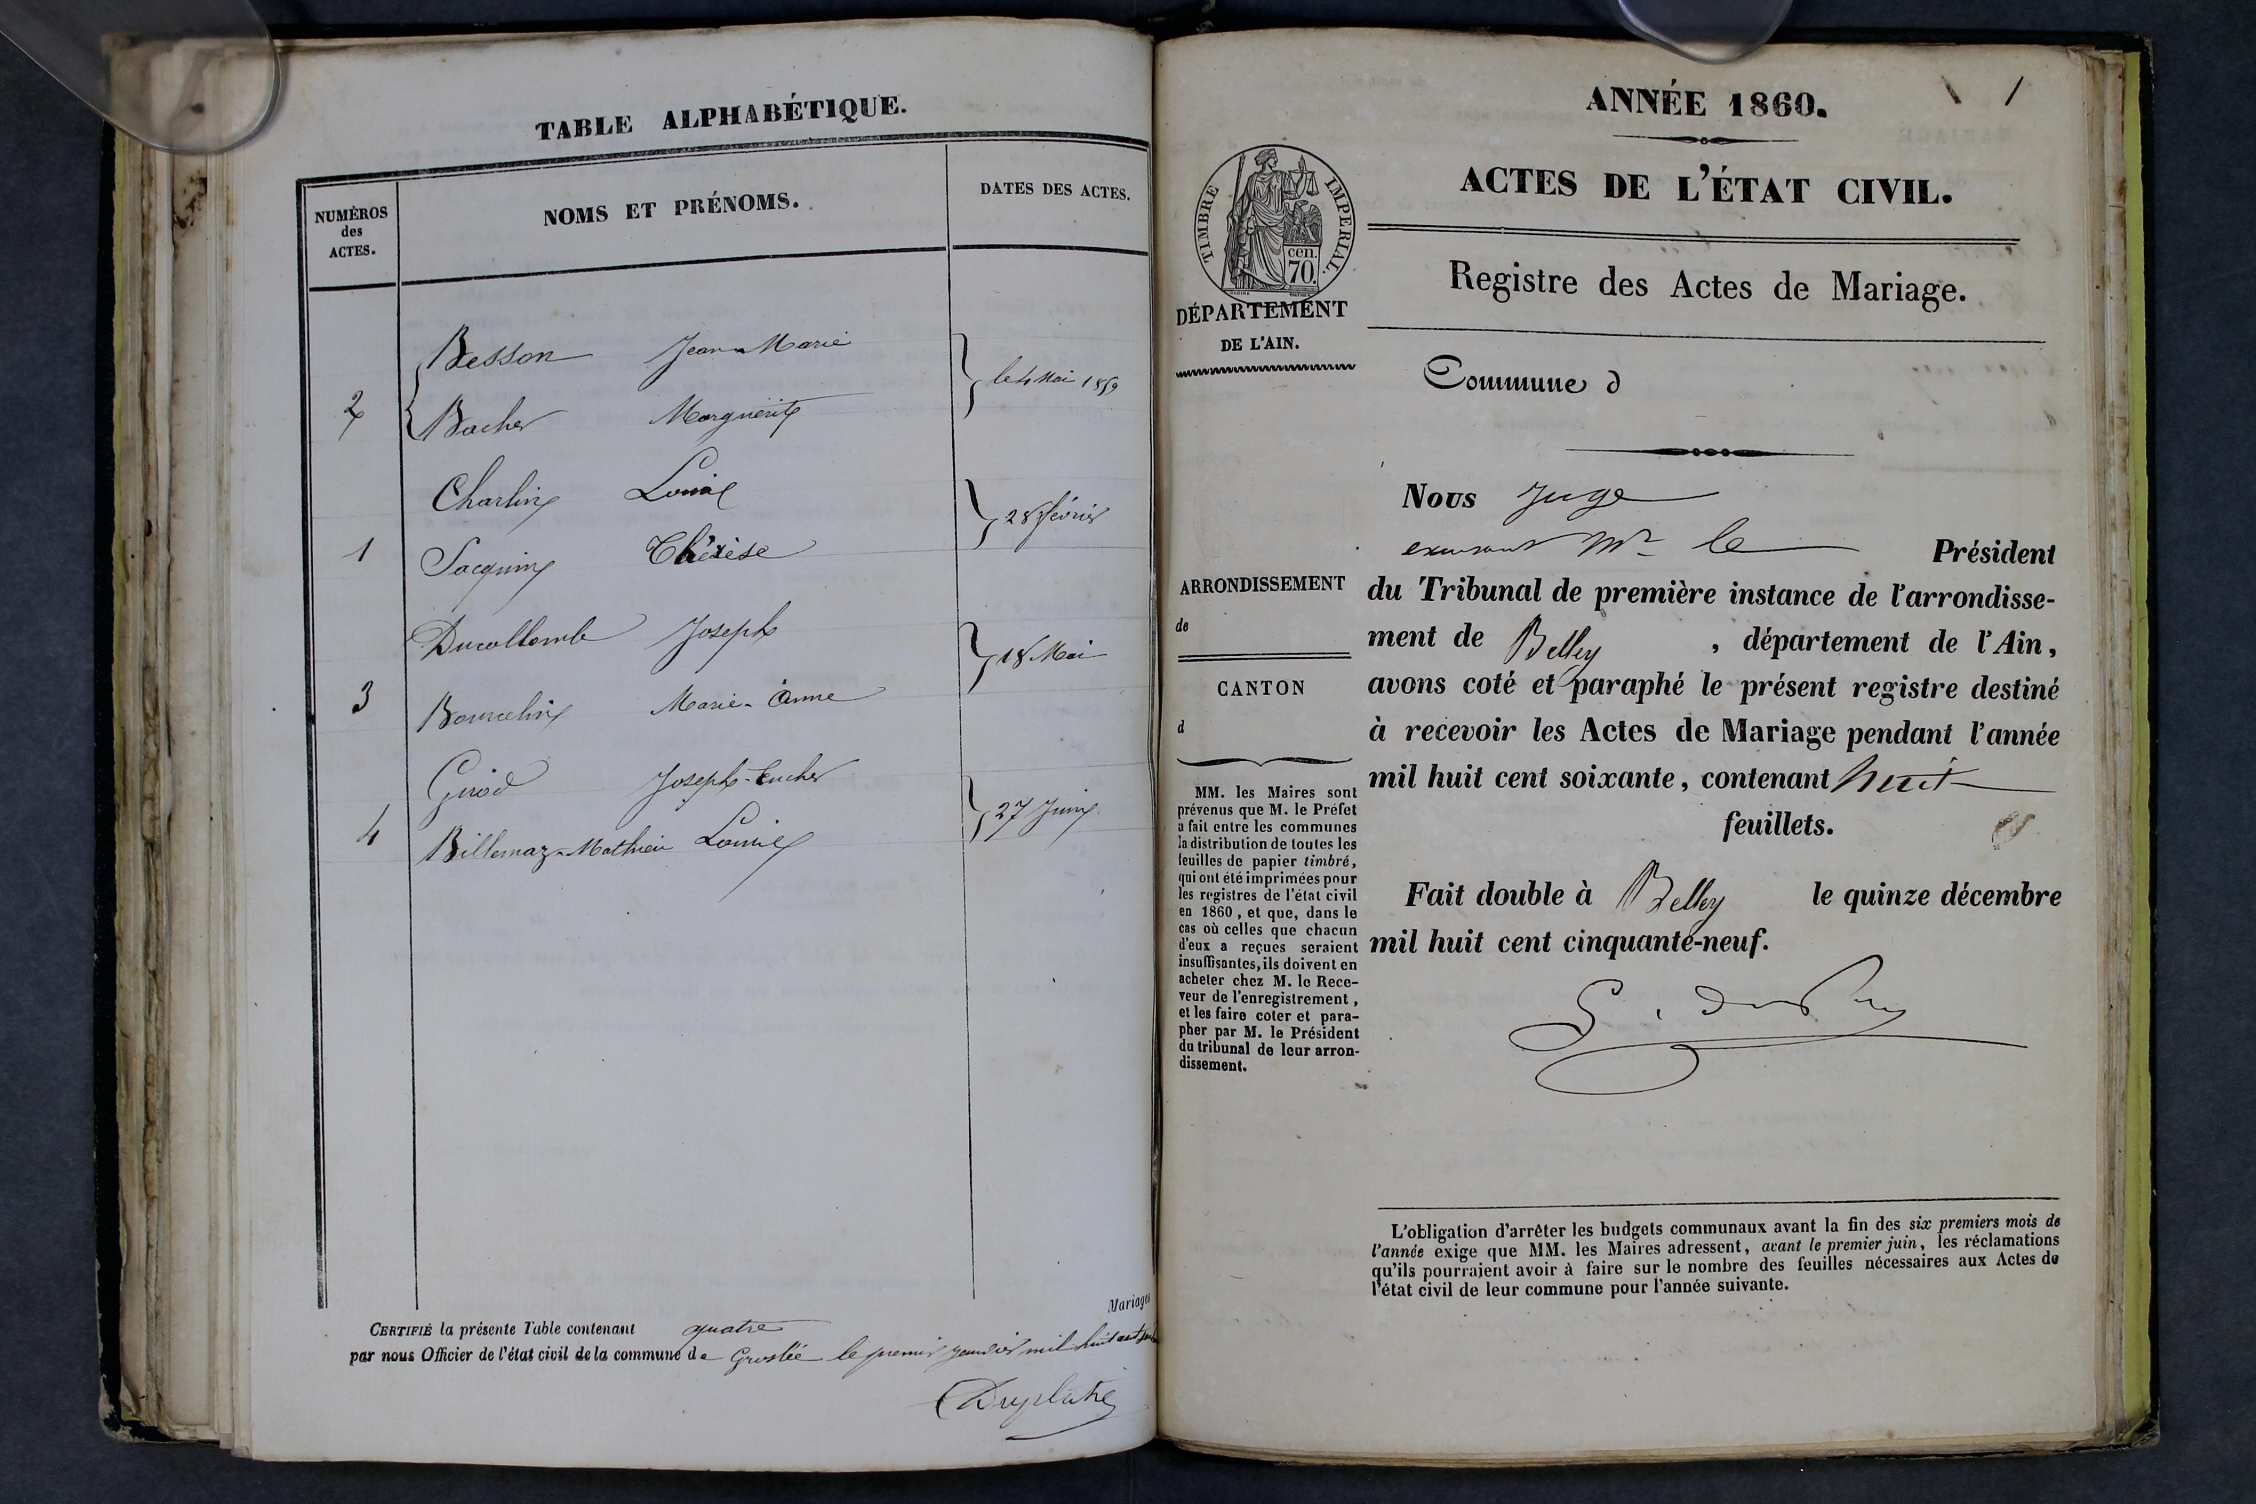 TABLE ALPHABÉTIQUE.
NUMÉROS
des
ACTES.
NOMS ET PRÉNOMS.
DATES DES ACTES.
Besson Jean-Marie
2 le 4 Mai 1859
Bacher Marguerite
Charlin Louis
28 février
1 Jacquin Thérèse
Ducollomb Joseph
18 Mai
3 Marie-Anne
Girod Joseph-Eucher
27 Juin
4 Billemaz-Mathieu Louise
Mariages
CERTIFIÉ la présente Table contenant quatre
par nous Officier de l'état civil de la commune de Groslée le premier janvier mil huit cent
Duplatre
1
ANNÉE 1860.
ACTES DE L'ÉTAT CIVIL.
TIMBRE IMPERIAL.
cen.
70.
DÉPARTEMENT
DE L'AIN.
Registre des Actes de Mariage.
Commune d
Nous Juge
Mr le Président
du Tribunal de première instance de l'arrondisse-
ment de Belley, département de l'Ain,
avons coté et paraphé le présent registre destiné
à recevoir les Actes de Mariage pendant l'année
mil huit cent soixante, contenant huit
feuillets.
Fait double à Belley le quinze décembre
mil huit cent cinquante-neuf.
ARRONDISSEMENT
de
CANTON
d
MM. les Maires sont
prévenus que M. le Préfet
a fait entre les communes
la distribution de toutes les
feuilles de papier timbré,
qui ont été imprimées pour
les registres de l'état civil
en 1860, et que, dans le
cas où celles que chacun
d'eux a reçues seraient
insuffisantes, ils doivent en
acheter chez M. le Rece-
veur de l'enregistrement,
et les faire coter et para-
pher par M. le Président
du tribunal de leur arron-
dissement.
L'obligation d'arrêter les budgets communaux avant la fin des six premiers mois de
l'année exige que MM. les Maires adressent, avant le premier juin, les réclamations
qu'ils pourraient avoir à faire sur le nombre des feuilles nécessaires aux Actes de
l'état civil de leur commune pour l'année suivante.